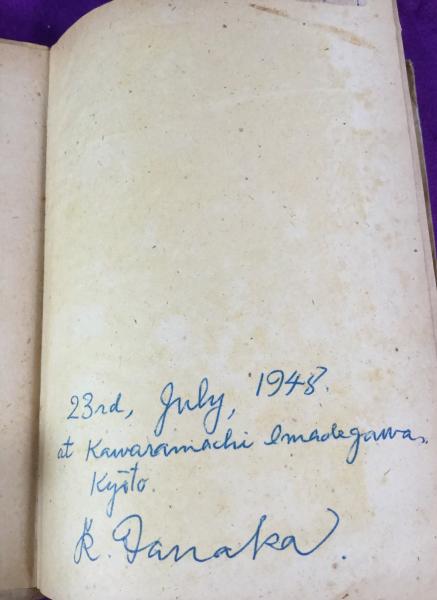 23rd, July, 1948.
at Kawaramachi Imadegawa,
Kyōto.
K. Tanaka.